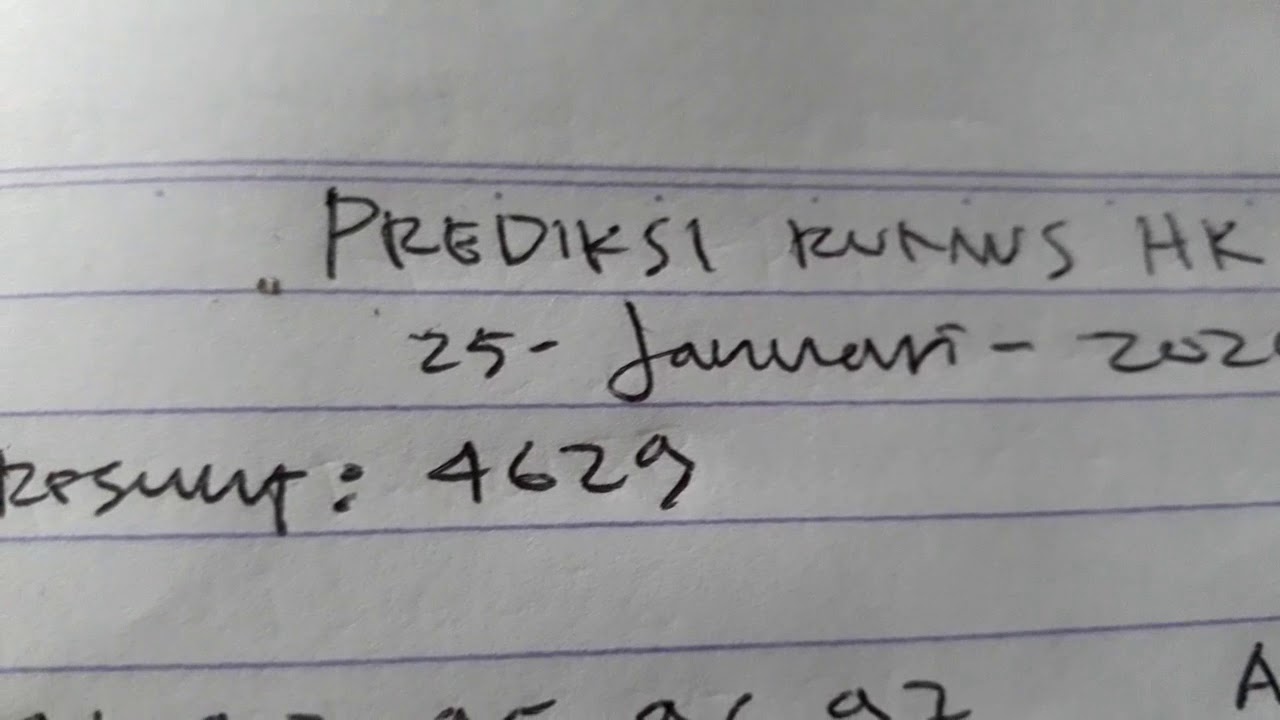 PREDIKSI RUMUS HK
25 - Januari - 202
Result: 4629
97